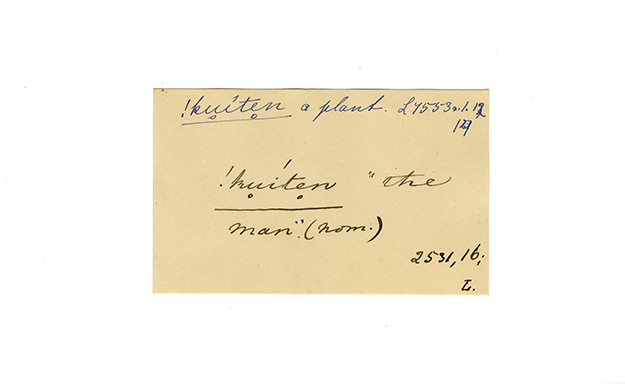 !kui̥te̥n a plant. L 7553
!kúi̥te̥n "the
man". (nom.)
2531, 16;
L.